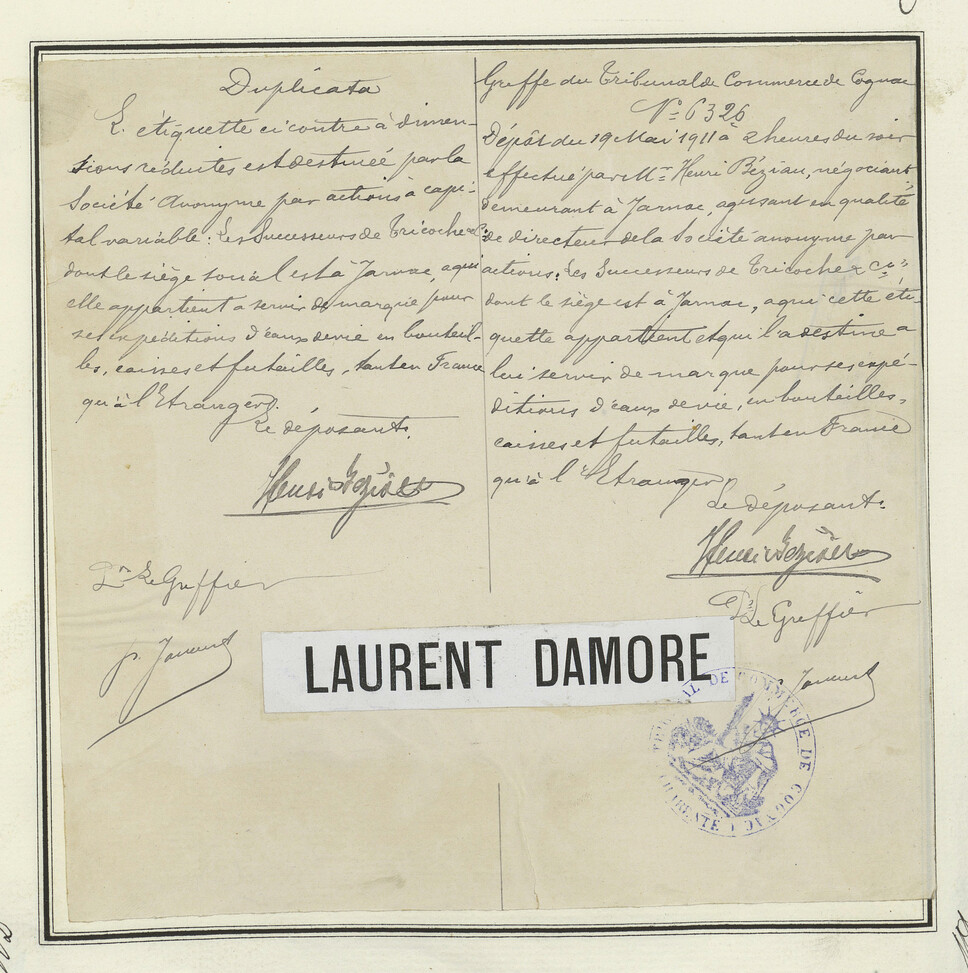 Duplicata
L'étiquette ci contre à dimen-
sions réduites est destinée par la
Société Anonyme par actions à capi-
tal variable: Les Successeurs de Tricoche & Cie
dont le siège social est à Jarnac, à qui
elle appartient à servir de marque pour
ses expéditions d'eaux de vie en bouteil-
les, caisses et futailles, tant en France
qu'à l'Etranger.
Le déposant.
Henri Bézian
Pr Le Greffier
Greffe du Tribunal de Commerce de Cognac
No 6326
Dépôt du 19 Mai 1911 à 2 heures du soir
effectué par Mr Henri Bézian, négociant,
demeurant à Jarnac, agissant en qualité
de directeur de la Société anonyme par
actions: Les Successeurs de Tricoche & Cie,
dont le siège est à Jarnac, à qui cette éti-
quette appartient et qui l'a destine à
lui servir de marque pour ses expé-
ditions d'eaux de vie, en bouteilles,
caisses et futailles, tant en France
qu'à l'Etranger
Le déposant.
Henri Bézian
Pr Le Greffier
LAURENT DAMORE
TRIBUNAL DE COMMERCE DE COGNAC
CHARENTE